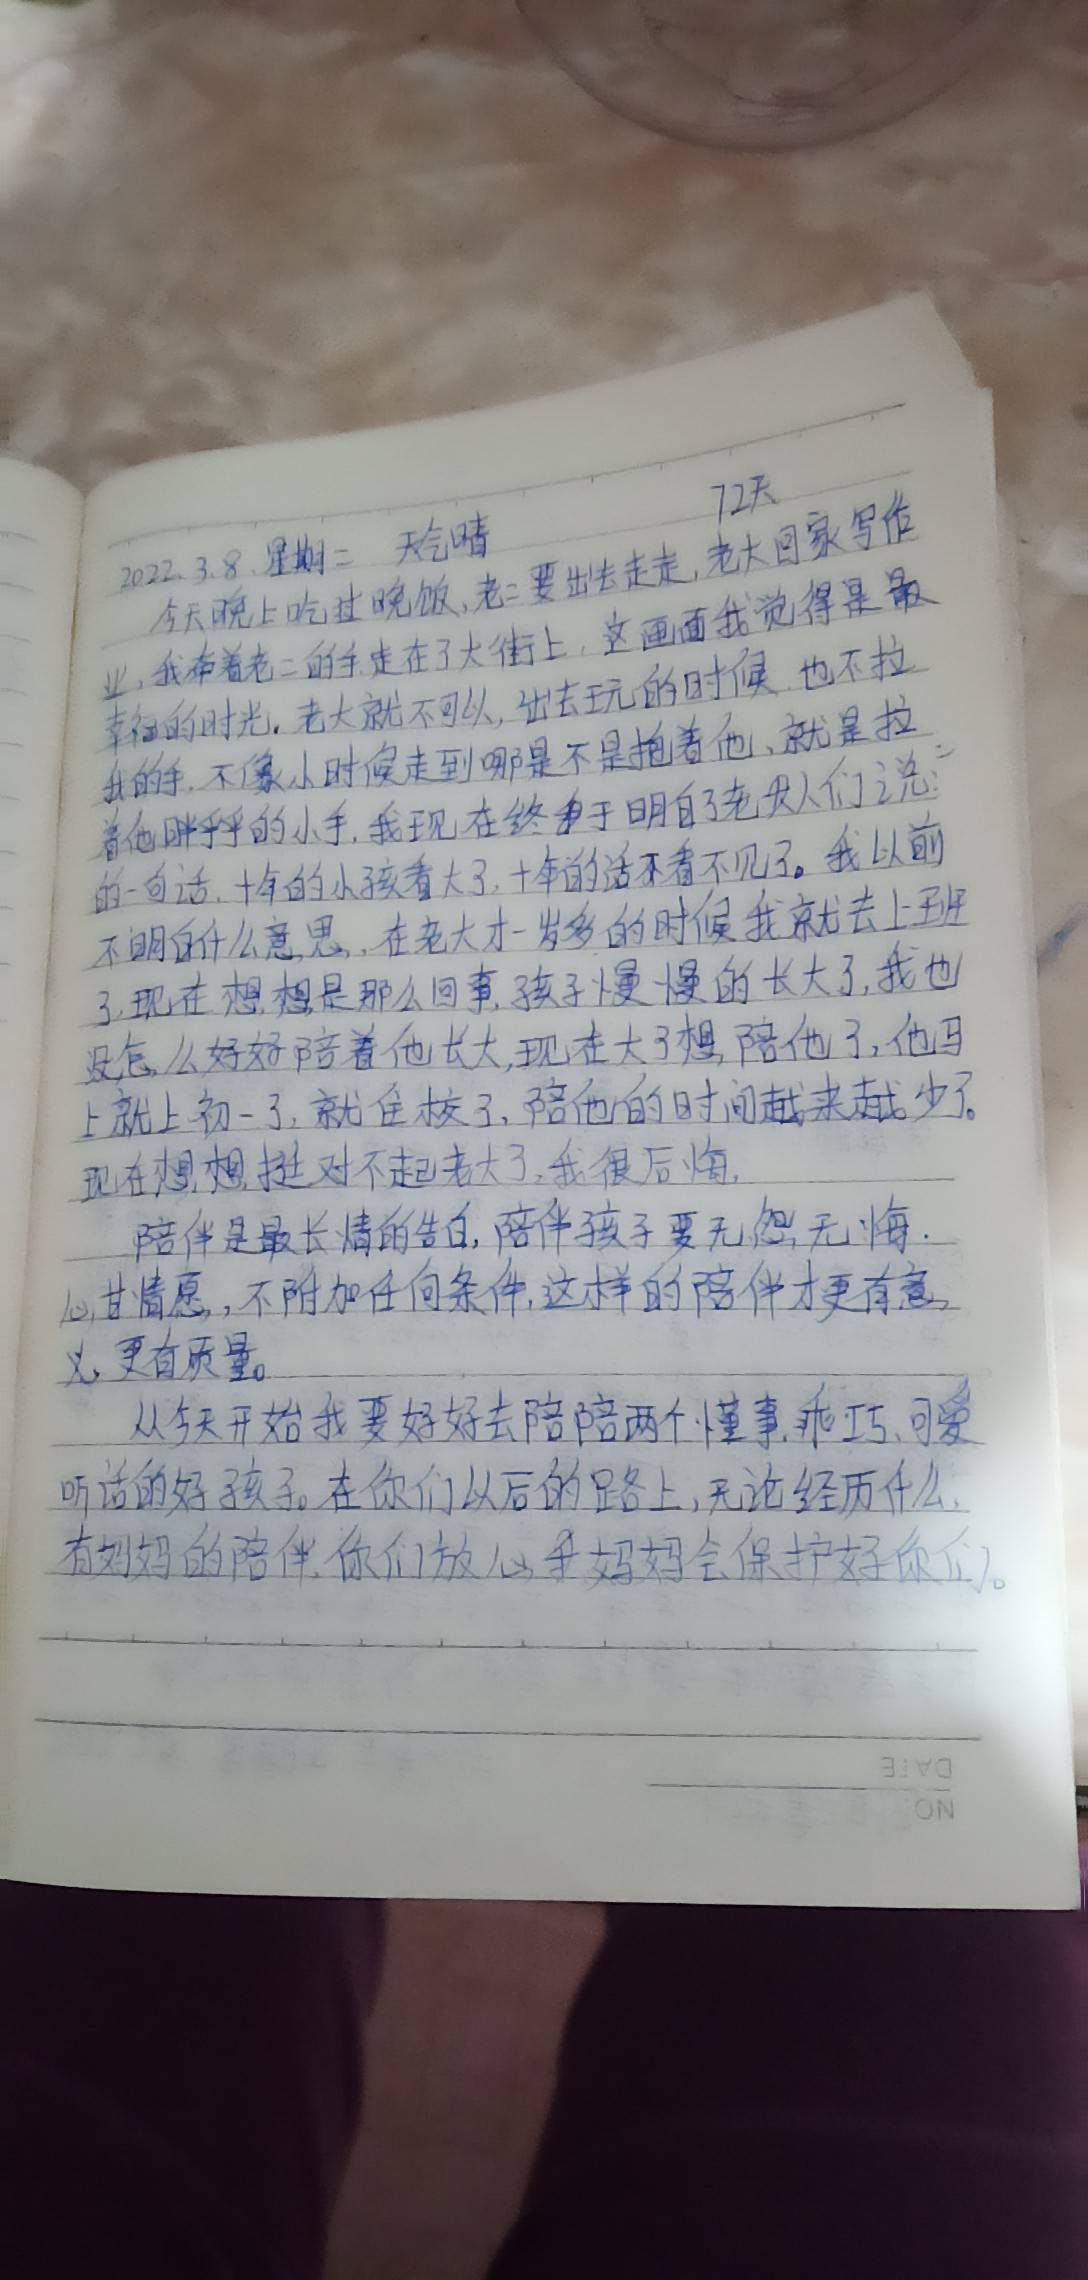 72天
2022.3.8.星期二 天气晴
今天晚上吃过晚饭,老二要出去走走,老大回家写作
业,我牵着老二的手走在了大街上,这画面我觉得是最
幸福的时光。老大就不可以,出去玩的时候,也不拉
我的手,不像小时候走到哪是不是抱着他、就是拉
着他胖乎乎的小手,我现在终于明白了老人们说:
的一句话,十年的小孩看大了,十年的话不看不见了。我以前
不明白什么意思,在老大才一岁多的时候我就去上班
了,现在想想是那么回事,孩子慢慢的长大了,我也
没怎么好好陪着他长大,现在大了想陪他了,他马
上就上初一了,就住校了,陪他的时间越来越少了。
现在想想,挺对不起老大了,我很后悔,
陪伴是最长情的告白,陪伴孩子要无怨无悔.
心甘情愿,不附加任何条件,这样的陪伴才更有意
义,更有质量。
从今天开始我要好好去陪陪两个懂事、乖巧、可爱
听话的好孩子。在你们以后的路上,无论经历什么,
有妈妈的陪伴,你们放心妈妈会保护好你们。
DATE
NO